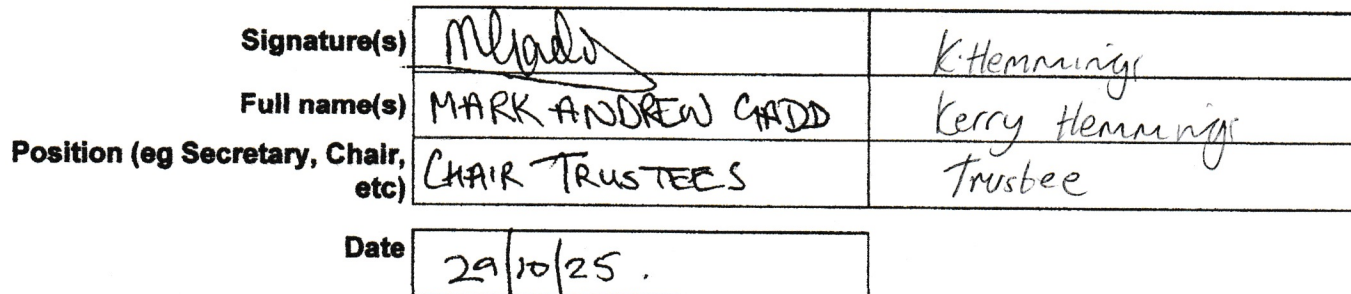 Signature(s) MGadd K.Hemmings
Full name(s) MARK ANDREW GADD Kerry Hemmings
Position (eg Secretary, Chair,
etc) CHAIR TRUSTEES Trustee
Date 29/10/25.